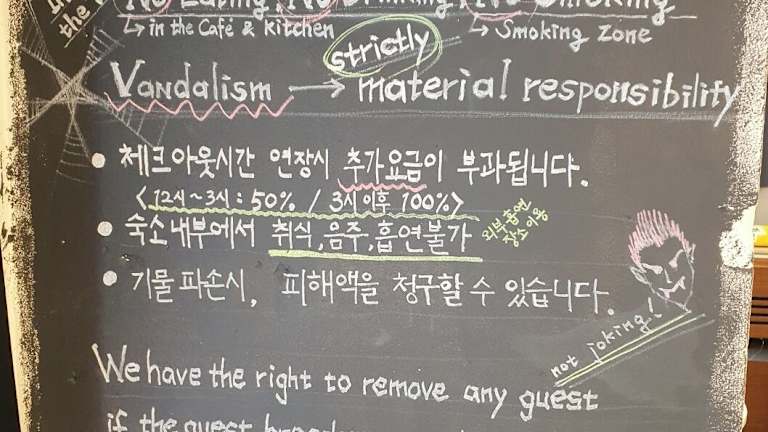 No Eating, No Drinking, No Smoking
in the
↳ in the Café & Kitchen ↳ Smoking Zone
strictly
Vandalism → material responsibility
• 체크아웃시간 연장시 추가요금이 부과됩니다.
<12시~3시 : 50% / 3시이후 100%>
• 숙소내부에서 취식,음주,흡연불가
외부흡연
장소이용
• 기물파손시, 피해액을 청구할 수 있습니다.
not joking!
We have the right to remove any guest
if the guest